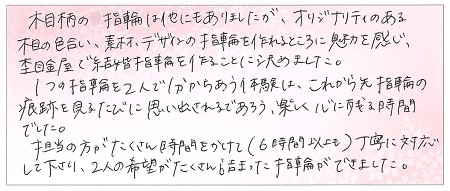 木目柄の指輪は他にもありましたが、オリジナリティのある
木目の色合い、素材、デザインの指輪を作れるところに魅力を感じ、
杢目金屋で結婚指輪を作ることに決めました。
1つの指輪を2人で1/分かちあう体験は、これから先指輪の
痕跡を見るたびに思い出されるであろう、楽しく心に残る時間
でした。
担当の方がたくさん時間をかけて(6時間以上も)丁寧に対応
して下さり、2人の希望がたくさん詰まった指輪ができました。